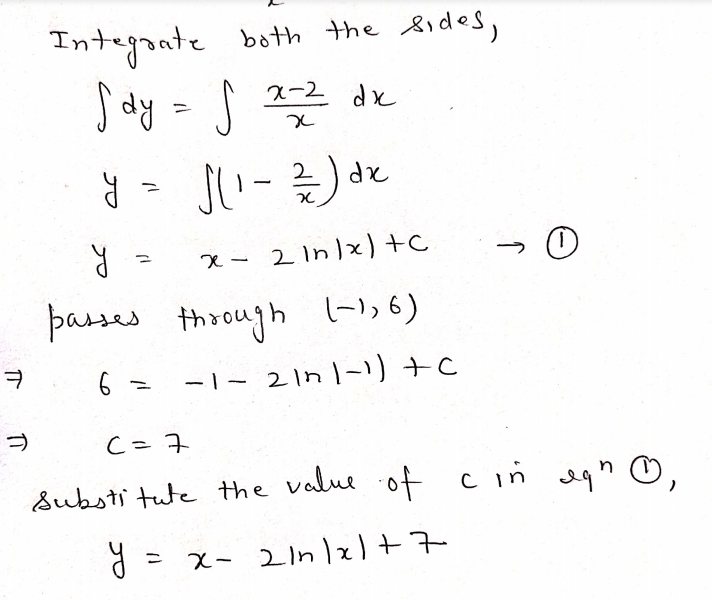 Integrate both the sides,
∫ dy = ∫ (x-2)/x dx
y = ∫(1 - 2/x) dx
y = x - 2 ln|x| + C → ①
passes through (-1, 6)
⇒ 6 = -1 - 2 ln|-1| + C
⇒ C = 7
substitute the value of c in eqn ①,
y = x - 2 ln|x| + 7